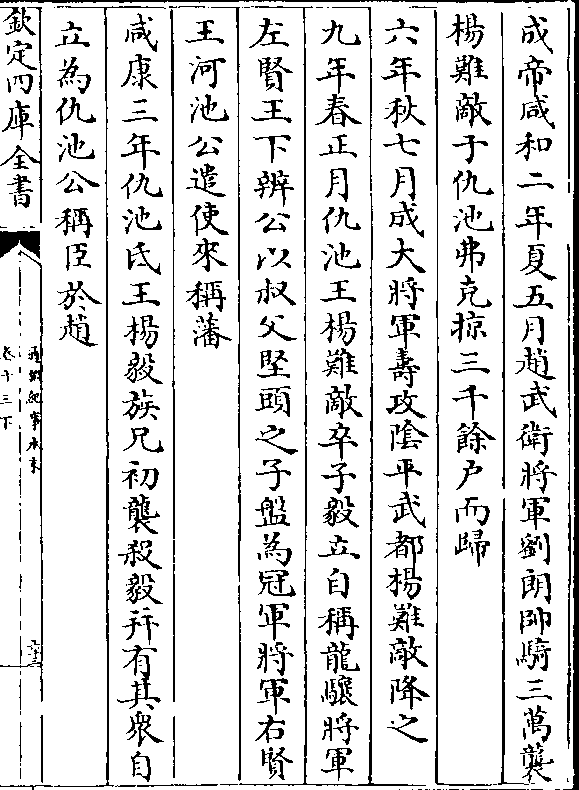 成帝咸和二年夏五月趙武衛將軍劉朗帥騎三萬襲
楊難敵于仇池弗克掠三千餘戶而歸
六年秋七月成大將軍壽攻陰平武都楊難敵降之
九年春正月仇池王楊難敵卒子毅立自稱龍驤將軍
左賢王下辨公以叔父堅頭之子盤為冠軍將軍右賢
王河池公遣使來稱藩
咸康三年仇池氐王楊毅族兄初襲殺毅并有其衆自
立為仇池公稱臣於趙
欽定四庫全書
通鑑紀事本末
卷十三下